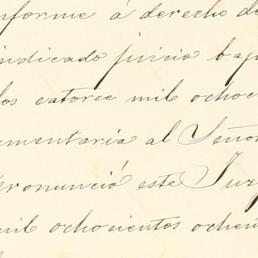 nforme á derecho de
indicado juicio baj
los catorce mil ochoc
ementaria al Señor
pronunció este Juz
mil ochocientos ochen